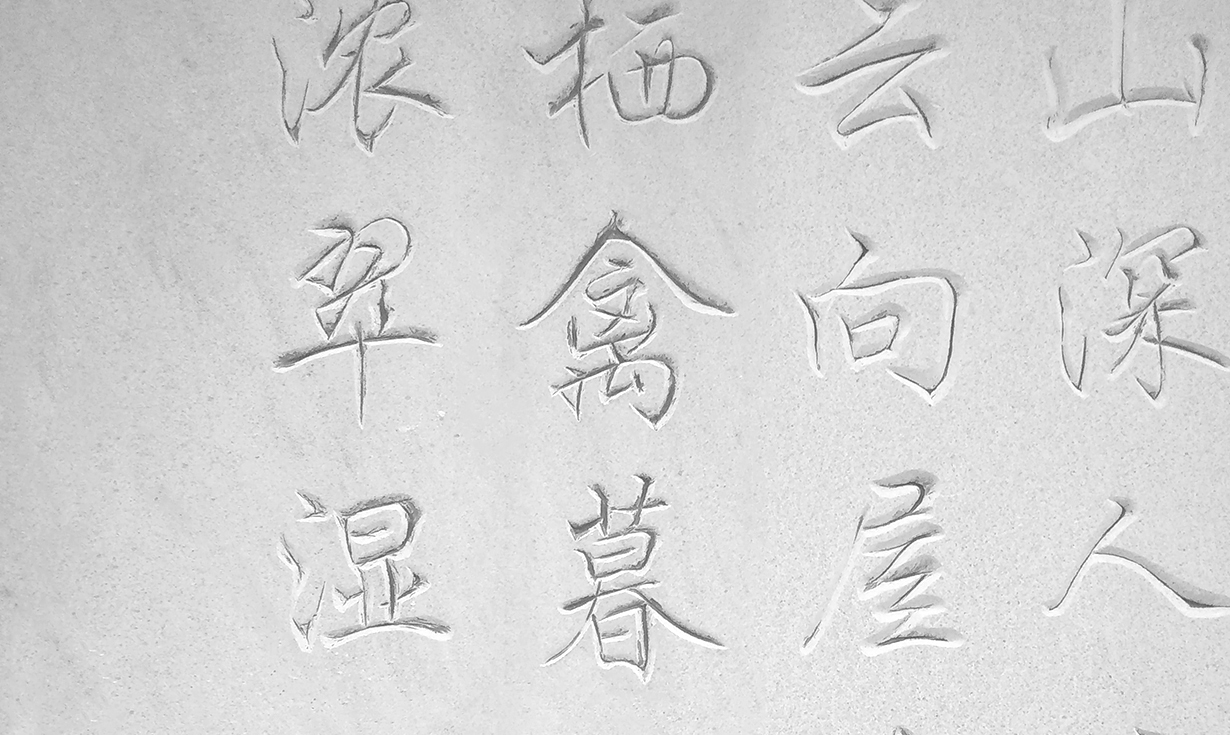 山深人
云向屋
栖禽暮
浓翠湿